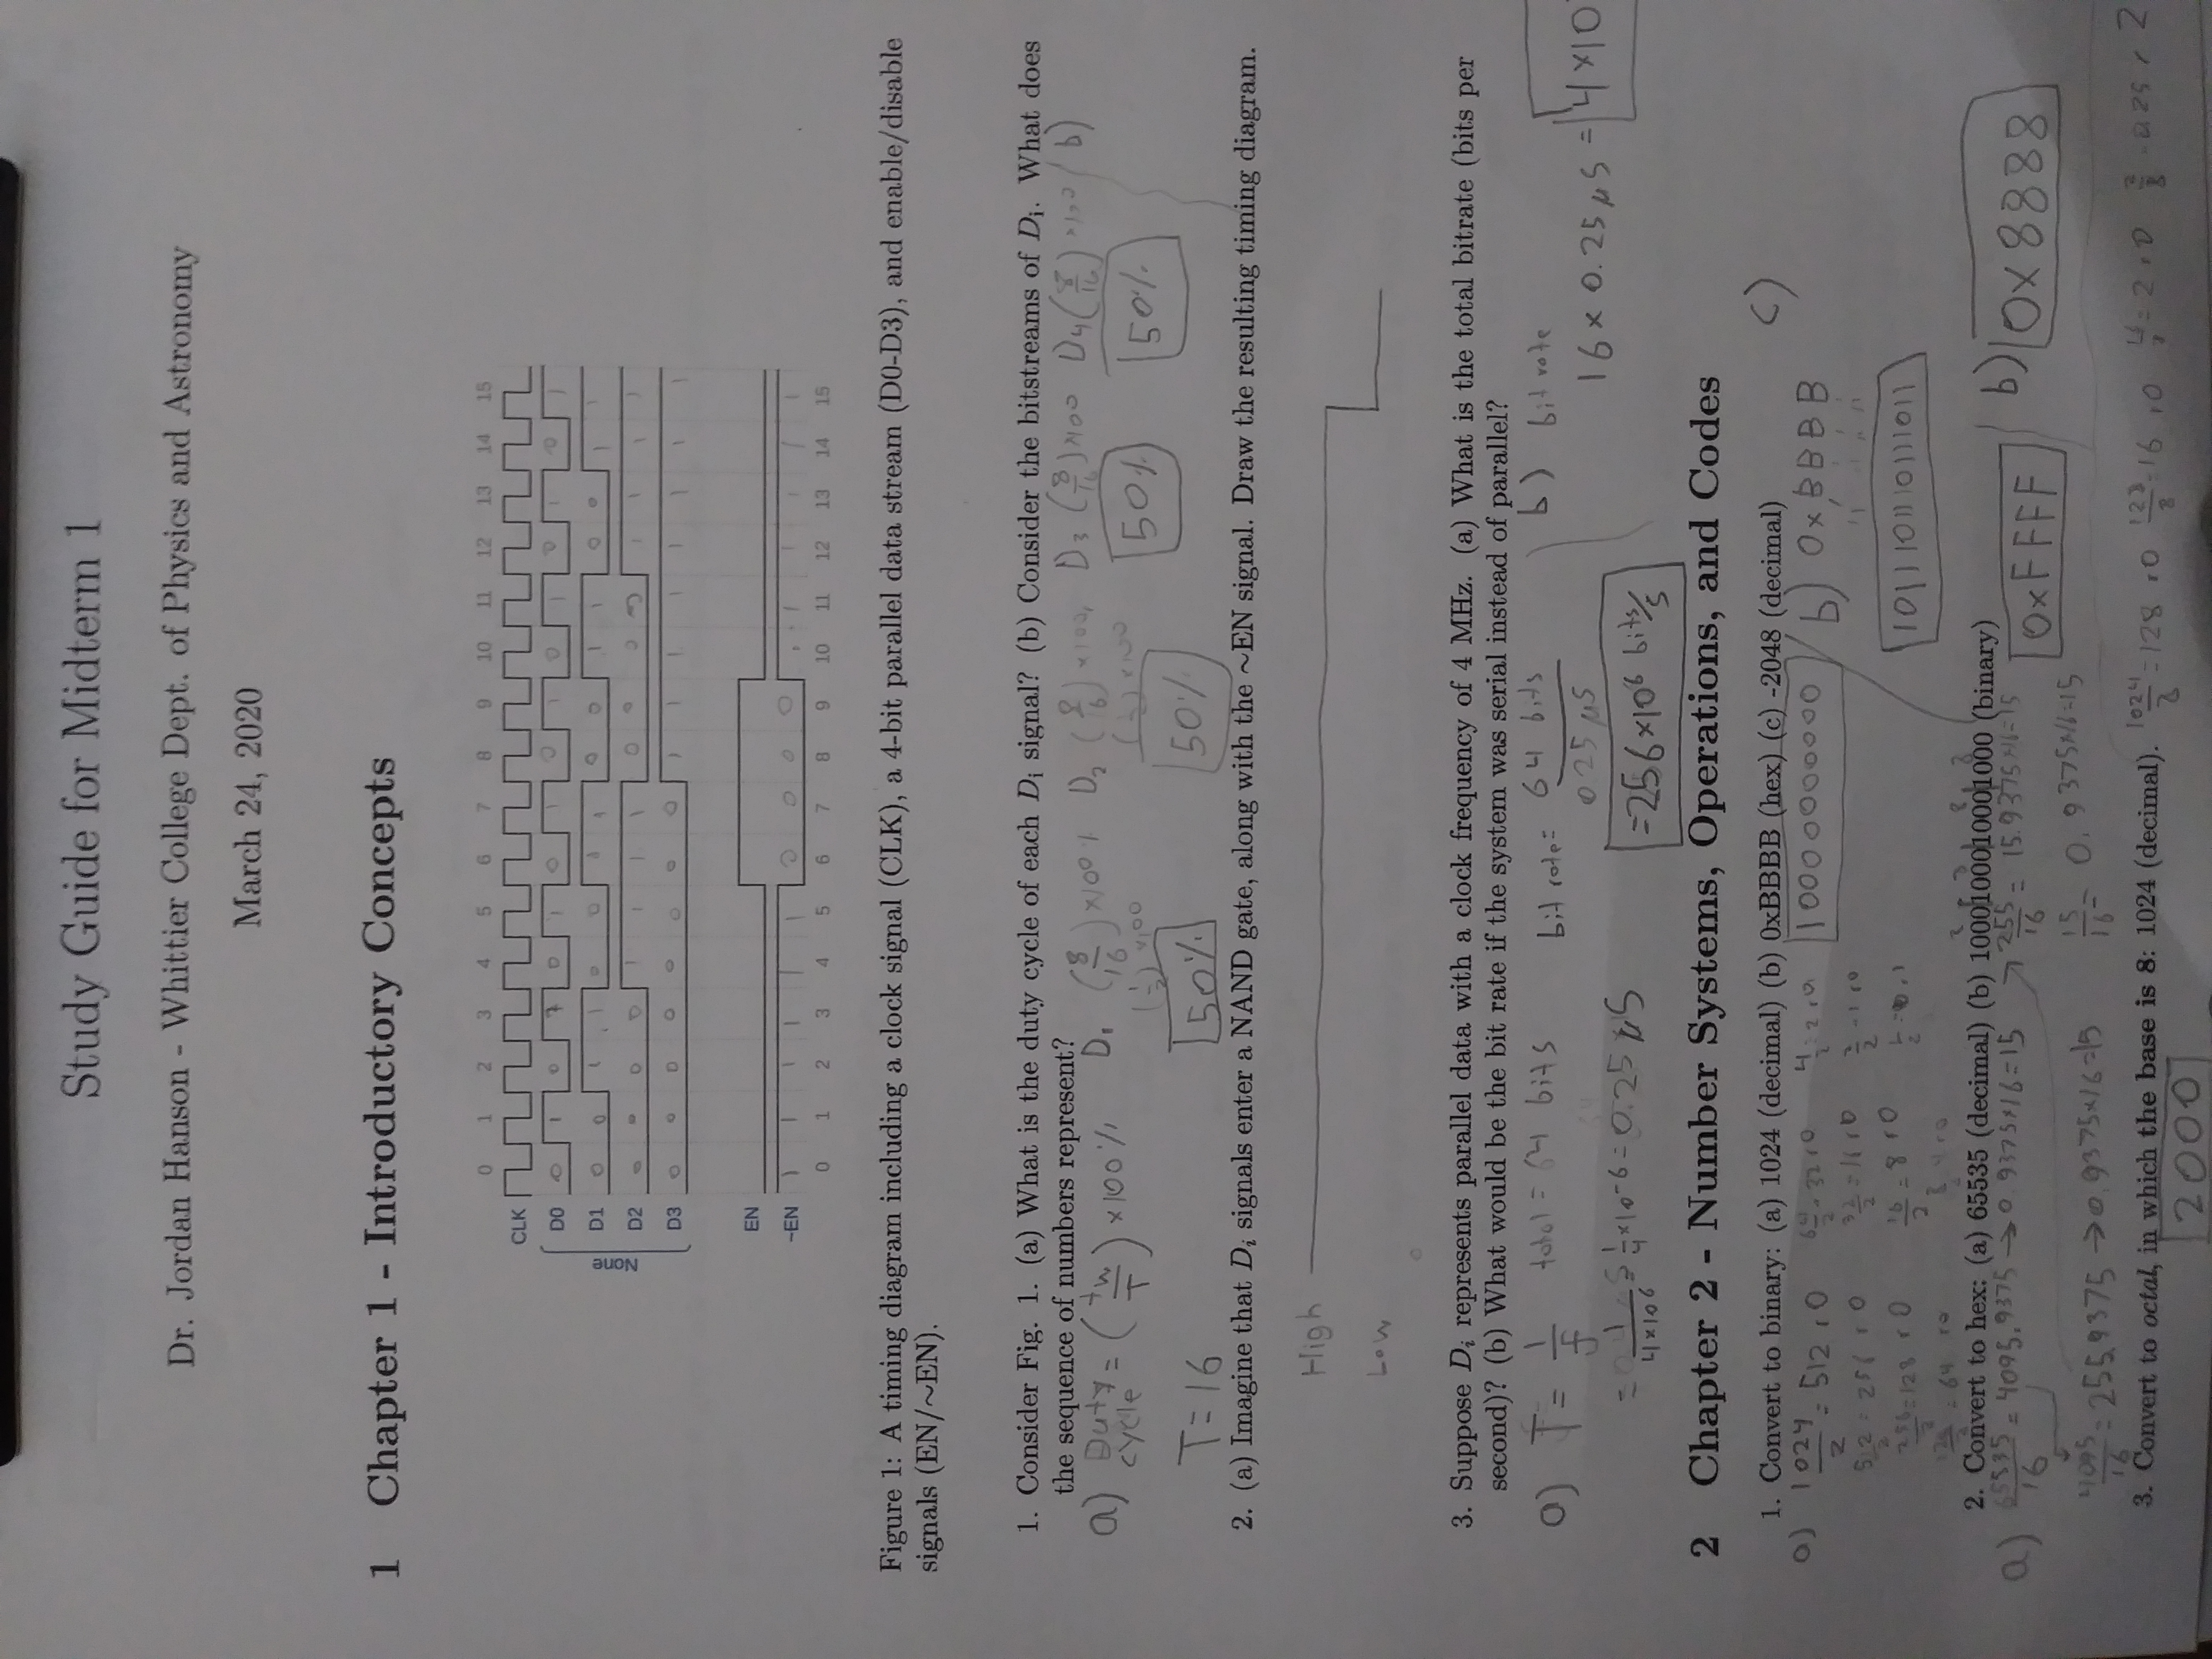 Study Guide for Midterm 1
Dr. Jordan Hanson - Whittier College Dept. of Physics and Astronomy
March 24, 2020
1 Chapter 1 - Introductory Concepts
0 1 2 3 4 5 6 7 8 9 10 11 12 13 14 15
CLK
D0 0 1 0 1 0 1 0 1 0 1 0 1 0 1 0 1
D1 0 0 1 1 0 0 1 1 0 0 1 1 0 0 1 1
None
D2 0 0 0 0 1 1 1 1 0 0 0 0 1 1 1 1
D3 0 0 0 0 0 0 0 0 1 1 1 1 1 1 1 1
EN
~EN 1 1 1 1 1 1 0 0 0 0 1 1 1 1 1 1
0 1 2 3 4 5 6 7 8 9 10 11 12 13 14 15
Figure 1: A timing diagram including a clock signal (CLK), a 4-bit parallel data stream (D0-D3), and enable/disable
signals (EN/~EN).
1. Consider Fig. 1. (a) What is the duty cycle of each Di signal? (b) Consider the bitstreams of Di. What does
the sequence of numbers represent?
a) Duty cycle = (tw/T) ×100% D1 (8/16)×100% D2 (8/16)×100% D3 (8/16)×100 D4 (8/16)×100 b)
(1/2)×100 (1/2)×100
T=16 50% 50% 50% 50%
2. (a) Imagine that Di signals enter a NAND gate, along with the ~EN signal. Draw the resulting timing diagram.
High
Low
3. Suppose Di represents parallel data with a clock frequency of 4 MHz. (a) What is the total bitrate (bits per
second)? (b) What would be the bit rate if the system was serial instead of parallel?
a) T = 1/f total = 64 bits bit rate = 64 bits / 0.25 μs b) bit rate
= 1/4×10^6 = 1/4×10^-6 = 0.25 μs =256×10^6 bits/s 16 × 0.25 μs = 4×10
2 Chapter 2 - Number Systems, Operations, and Codes
1. Convert to binary: (a) 1024 (decimal) (b) 0xBBBB (hex) (c) -2048 (decimal) c)
a) 1024/2 = 512 r 0 64/2 = 32 r 0 4/2 = 2 r 0 10000000000 b) 0xBBBB
512/2 = 256 r 0 32/2 = 16 r 0 2/2 = 1 r 0
256/2 = 128 r 0 16/2 = 8 r 0 1011101110111011
128/2 = 64 r 0
2. Convert to hex: (a) 65535 (decimal) (b) 1000100010001000 (binary)
a) 65535/16 = 4095.9375 → 0.9375×16=15 → 255/16 = 15.9375×16=15 0xFFFF b) 0x8888
4095/16 = 255.9375 → 0.9375×16=15 15/16 = 0.9375×16=15
3. Convert to octal, in which the base is 8: 1024 (decimal). 1024/8 = 128 r 0 128/8 = 16 r 0 16/8 = 2 r 0 2/8 = 0.25 r 2
2000